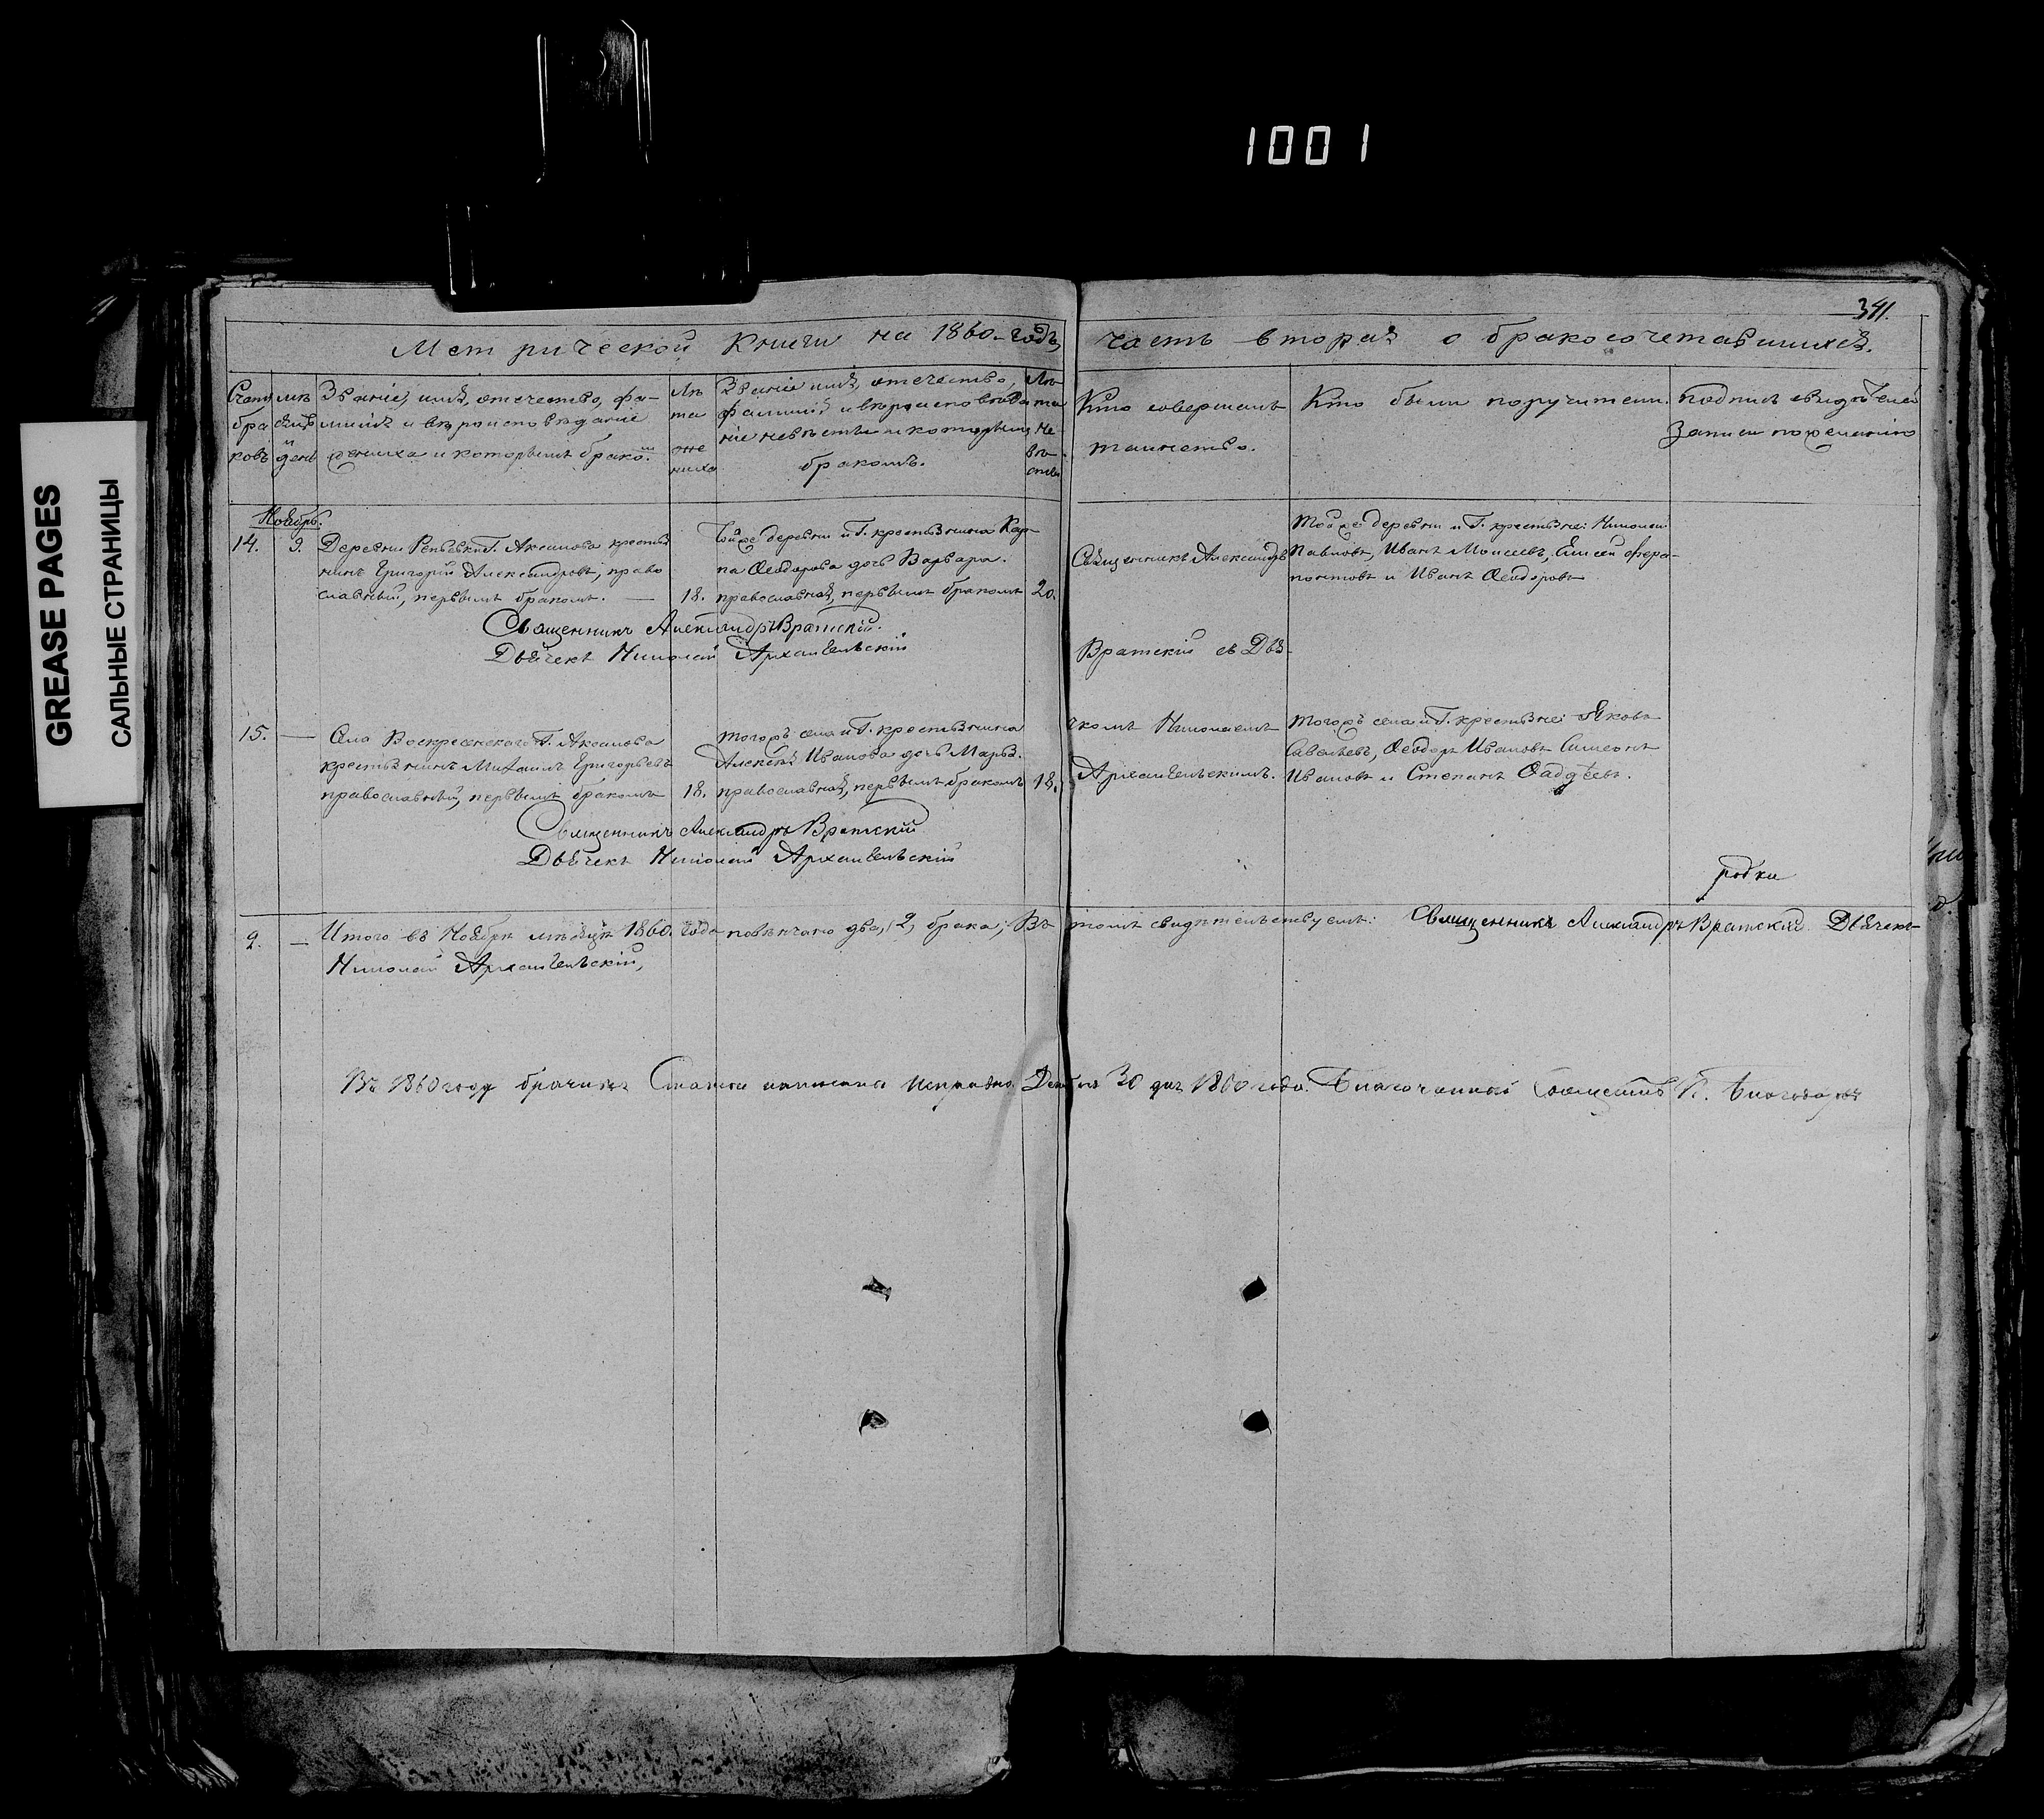 1001
GREASE PAGES
САЛЬНЫЕ СТРАНИЦЫ
341.
Метрической Книги на 1860-годъ,
часть вторая о бракосочетавшихся.
Счетъ браковъ
мѣсяцъ и день
Званіе, имя, отечество, фа-
милія и вѣроисповѣданіе
жениха и которымъ бракомъ
Лѣта жениха
Званіе имя, отечество,
фамилія и вѣроисповѣда
ніе невѣсты и которымъ
бракомъ.
Лѣта невѣсты
Кто совершалъ
таинство.
Кто были поручители.
подпись свидѣтелей
записи по желанію
Ноябрь.
14.
9.
Деревни Репьевки Г. Аксакова крестья
нинъ Григорій Александровъ, право
славный, первымъ бракомъ. —
18.
Тойже деревни и Г. крестьянина Кар-
па Феодорова дочь Варвара.
православная, первымъ бракомъ
20.
Священникъ Александръ
Тойже деревни и Г. крестьяне: Николай
Павловъ, Иванъ Моисеевъ, Елисей Фера-
понтовъ и Иванъ Феодоровъ
Священникъ Александръ Вратскій.
Дьячекъ Николай Архангельскій
Вратскій съ Дья-
15.
—
Села Воскресенскаго Г. Аксакова
крестьянинъ Михаилъ Григорьевъ
православный, первымъ бракомъ
18.
тогожъ села и Г. крестьянина
Алексѣя Иванова дочь Марья.
православная, первымъ бракомъ
18.
чкомъ Николаемъ
Архангельскимъ.
тогожъ села и Г. крестьяне: Яковъ
Савельевъ, Феодоръ Ивановъ Симеонъ
Ивановъ и Степанъ Фаддѣевъ.
Священникъ Александръ Вратскій
Дьячекъ Николай Архангельскій
2.
—
Итого въ Ноябрѣ мѣсяцѣ 1860. года повѣнчано два, 2, брака; Въ томъ свидѣтельствуемъ: Священникъ Александръ Вратскій Дьячекъ
Николай Архангельскій,
Въ 1860 году брачныхъ Статьи написаны исправно. Декабря 30 дня 1860 года. Благочинный Священникъ